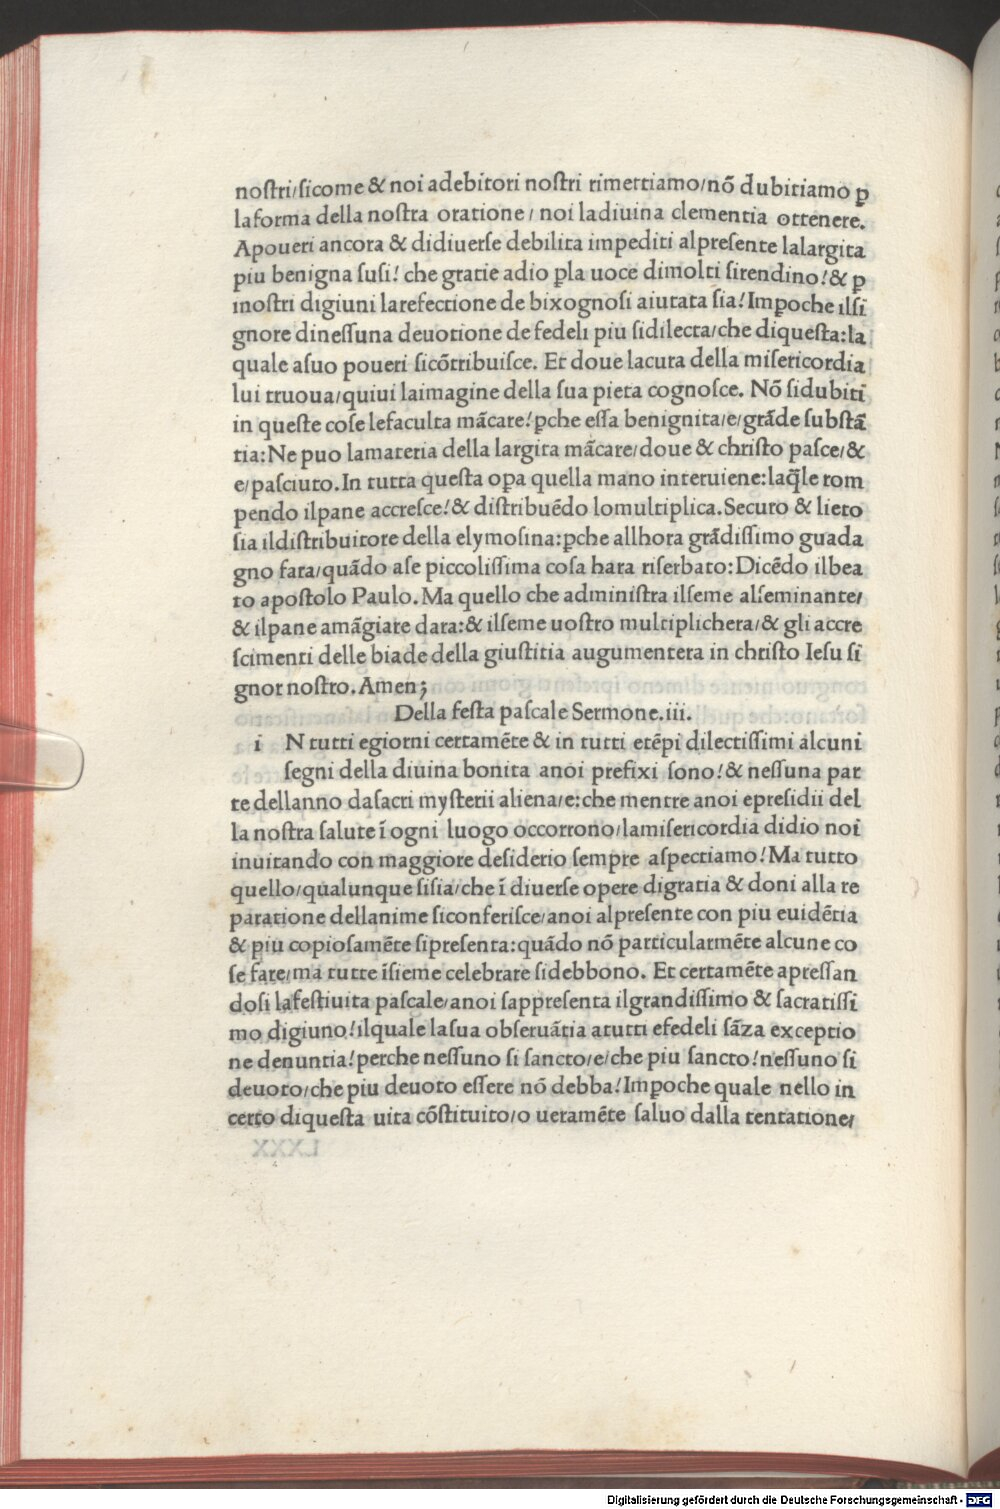 noſtri/ſicome & noi adebitori noſtri rimettiamo/nō dubitiamo ꝑ
laforma della noſtra oratione/ noi ladiuina clementia ottenere.
Apoueri ancora & didiuerſe debilita impediti alpreſente lalargita
piu benigna ſuſi! che gratie adio ꝑla uoce dimolti ſirendino!& ꝑ
inoſtri digiuni larefectione de bixognoſi aiutata ſia! Imꝑoche ilſi
gnore dineſſuna deuotione de fedeli piu ſidilecta/che diqueſta:la
quale aſuo poueri ſicōtribuiſce. Et doue lacura della miſericordia
lui truoua/quiui laimagine della ſua pieta cognoſce. Nō ſidubiti
in queſte coſe lefaculta mācare!ꝑche eſſa benignita/e/grāde ſubſtā
tia:Ne puo lamateria della largita mācare/doue & chriſto paſce/&
e/paſciuto.In tutta queſta oꝑa quella mano interuiene:laq̄le rom
pendo ilpane accreſce!& diſtribuēdo lomultiplica.Securo & lieto
ſia ildiſtribuitore della elymoſina:ꝑche allhora grādiſſimo guada
gno fara/quādo aſe piccoliſſima coſa hara riſerbato:Dicēdo ilbea
to apoſtolo Paulo.Ma quello che adminiſtra ilſeme alſeminante/
& ilpane amāgiare dara:& ilſeme uoſtro multiplichera/& gli accre
ſcimenti delle biade della giuſtitia augumentera in chriſto Ieſu ſi
gnor noſtro.Amen;
Della feſta paſcale Sermone.iii.
i N tutti egiorni certamēte & in tutti etēpi dilectiſſimi alcuni
ſegni della diuina bonita anoi prefixi ſono!& neſſuna par
te dellanno daſacri myſterii aliena/e:che mentre anoi epreſidii del
la noſtra ſalute ī ogni luogo occorrono/lamiſericordia didio noi
inuitando con maggiore deſiderio ſempre aſpectiamo!Ma tutto
quello/qualunque ſiſia/che ī diuerſe opere digratia & doni alla re
paratione dellanime ſiconferiſce/anoi alpreſente con piu euidētia
& piu copioſamēte ſipreſenta:quādo nō particularmēte alcune co
ſe fare/ma tutte īſieme celebrare ſidebbono. Et certamēte apreſſan
doſi lafeſtiuita paſcale/anoi ſappreſenta ilgrandiſſimo & ſacratiſſi
mo digiuno!ilquale laſua obſeruātia atutti efedeli ſāza exceptio
ne denuntia!perche neſſuno ſi ſancto/e/che piu ſancto!neſſuno ſi
deuoto/che piu deuoto eſſere nō debba!Imꝑoche quale nello in
certo diqueſta uita cōſtituito/o ueramēte ſaluo dalla tentatione/
LXXX
Digitalisierung gefördert durch die Deutsche Forschungsgemeinschaft - DFG